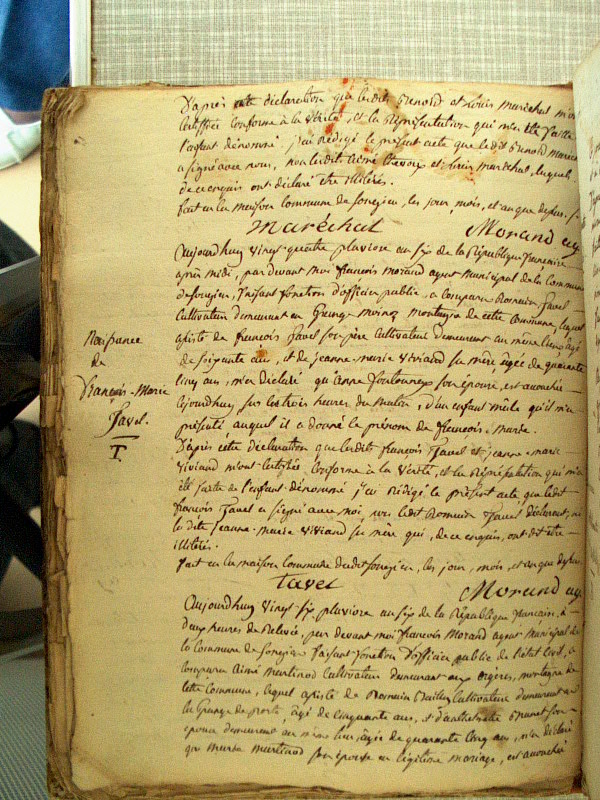 D'après cette déclaration que lesdits Benoist et Louis Maréchal m'ont
certifiée conforme à la vérité, et la représentation qui m'a été faite
l'enfant dénommé j'ai rédigé le présent acte que ledit Benoist Maréchal
a signé avec nous, non ledit Aimé et Louis Maréchal, lesquels
de ce enquis ont déclaré être illitérés.
fait en la maison commune de Songieu, les jour, mois, et an que dessus.
Maréchal Morand ag.
Aujourdhuy vingt quatre pluviose an six de la République française
après midi, par devant moi françois morand agent municipal de la commune
de Songieu, faisant fonction d'officier public, a comparu Romain Favel
Cultivateur demeurant en Grange montagne de cette commune, lequel
assisté de françois Favel son père Cultivateur demeurant au même lieu, âgé
de soixante ans, et de jeanne-marie Viviand sa mère, âgée de quarante
cinq ans, m'a déclaré qu'anne son épouse, est accouchée
aujourdhuy sur les trois heures du matin, d'un enfant mâle qu'il m'a
présenté auquel il a donné le prénom de françois-marie.
D'après cette déclaration que lesdits françois Favel et jeanne-marie
Viviand m'ont certifiée conforme à la vérité, et la représentation qui m'a
été faite de l'enfant dénommé j'ai rédigé le présent acte, que ledit
françois Favel a signé avec moi, non ledit Romain Favel déclarant, ni
la dite jeanne-marie Viviand sa mère qui, de ce enquis, ont dit être
illitérés.
fait en la maison commune dudit Songieu, les jour, mois, et an que dessus.
Favel Morand ag.
Naissance
de
François-Marie
Favel.
T.
Aujourdhuy vingt six pluviose an six de la République française, à
deux heures de relevée, par devant moi françois Morand agent municipal de
la commune de Songieu faisant fonction d'officier public de l'état civil, a
comparu Aimé Martinod Cultivateur demeurant aux orgères, montagne de
cette commune, lequel assisté de Romain Cultivateur demeurant à
la Grange de âgé de cinquante ans, et d' son
épouse demeurant au même lieu, âgée de quarante cinq ans, m'a déclaré
que Martinod son épouse en légitime mariage, est accouchée